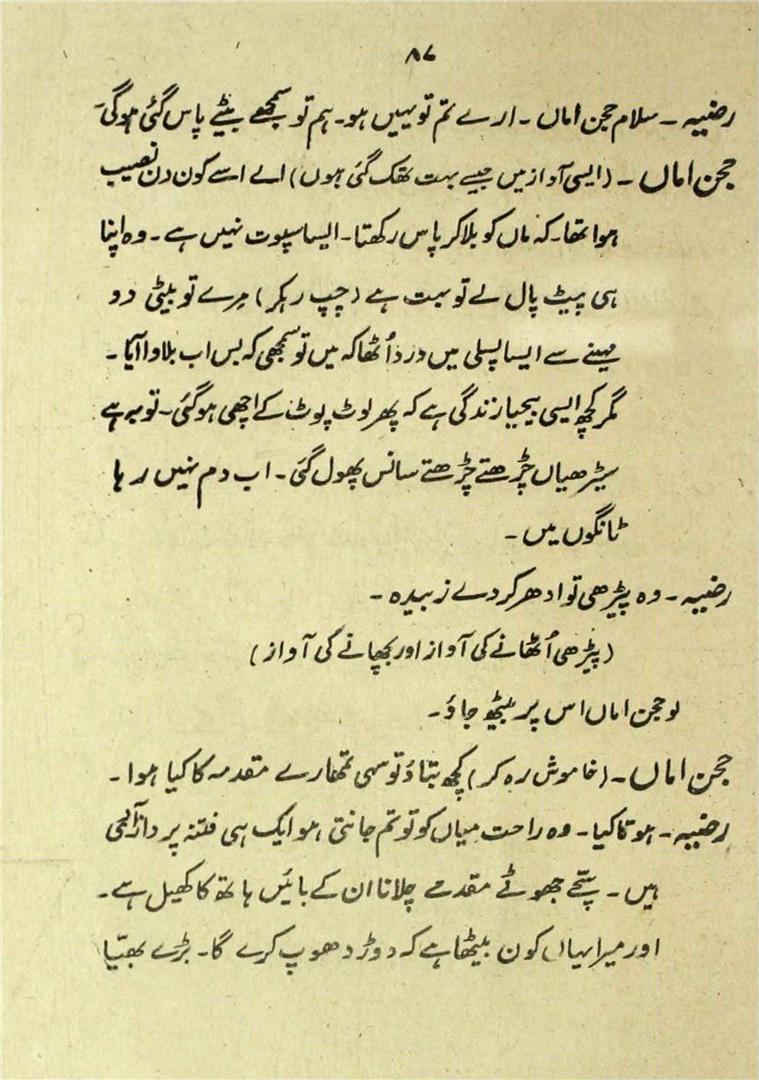 ۸۷
رضیہ ۔ سلام حجن اماں ۔ ارے تم تو یہیں ہو۔ ہم تو سمجھے بیٹے پاس گئی ہوگی۔
حجن اماں ۔ (ایسی آواز میں جیسے بہت تھک گئی ہوں) اے اسے کون دن نصیب
ہوا تھا۔ کہ ماں کو بلا کر پاس رکھتا۔ ایسا سپوت نہیں ہے ۔ وہ اپنا
ہی پیٹ پال لے تو بہت ہے (چپ رہکر) مرے تو بیٹی دو
مہینے سے ایسا پسلی میں درد اُٹھا کہ میں تو سمجھی کہ بس اب بلاوا آیا ۔
مگر کچھ ایسی بیحیا زندگی ہے کہ پھر لوٹ پوٹ کے اچھی ہو گئی۔ توبہ ہے
سیڑھیاں چڑھتے چڑھتے سانس پھول گئی ۔ اب دم نہیں رہا
ٹانگوں میں ۔
رضیہ ۔ وہ پیڑھی تو ادھر کردے زبیدہ ۔
(پیڑھی اُٹھانے کی آواز اور بچھانے کی آواز)
لو حجن اماں اس پر بیٹھ جاؤ۔
حجن اماں ۔ (خاموش رہ کر) کچھ بتاؤ تو سہی تمھارے مقدمہ کا کیا ہوا ۔
رضیہ ۔ ہوتا کیا ۔ وہ راحت میاں کو تو تم جانتی ہو ایک ہی فتنہ پرداز آدمی
ہیں ۔ سچّے جھوٹے مقدمے چلانا ان کے بائیں ہاتھ کا کھیل ہے ۔
اور میرا یہاں کون بیٹھا ہے کہ دوڑ دھوپ کرے گا۔ بڑے بھیّا